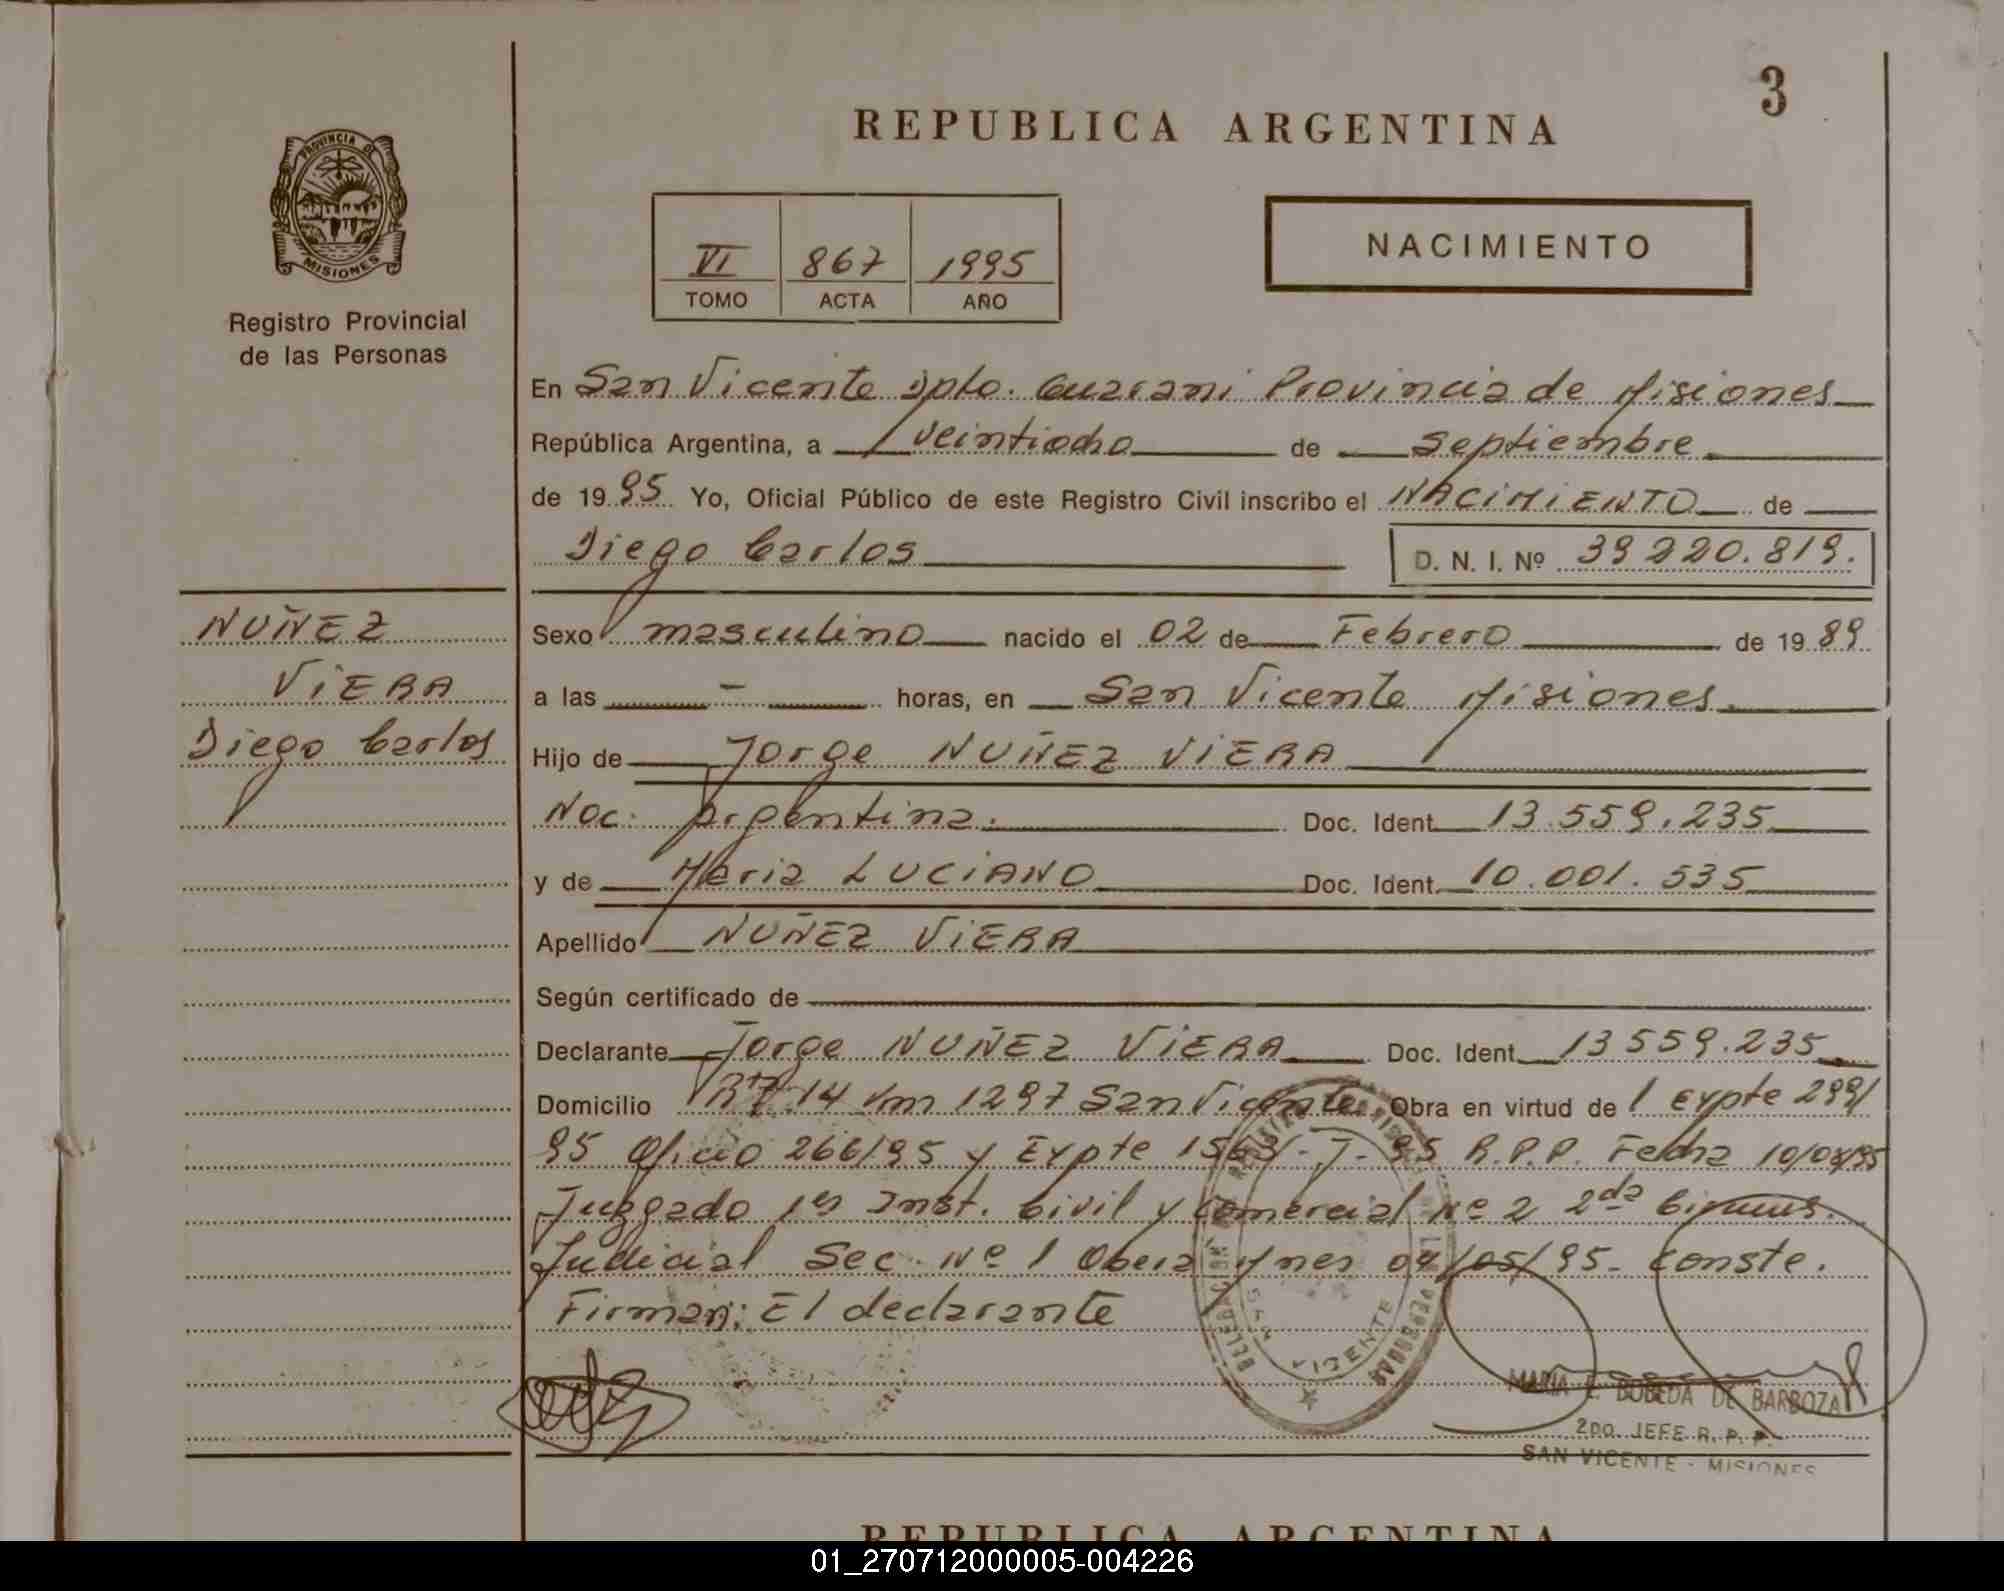 3
REPUBLICA ARGENTINA
PROVINCIA DE
MISIONES
Registro Provincial
de las Personas
VI 867 1995
TOMO ACTA AÑO
NACIMIENTO
En San Vicente Dpto. Guarani Provincia de Misiones
República Argentina, a veintiocho de septiembre
de 1995 Yo, Oficial Público de este Registro Civil inscribo el NACIMIENTO de
Diego Carlos D. N. I. Nº 39220.819.
NUÑEZ
VIERA
Diego Carlos
Sexo masculino nacido el 02 de Febrero de 1989
a las - horas, en San Vicente Misiones
Hijo de Jorge NUÑEZ VIERA
Nac: argentina. Doc. Ident. 13.559.235
y de Maria LUCIANO Doc. Ident. 10.001.535
Apellido NUÑEZ VIERA
Según certificado de
Declarante Jorge NUÑEZ VIERA Doc. Ident. 13559.235
Domicilio Rta 14 km 1297 San Vicente. Obra en virtud de 1 expte 299/
95 Oficio 266/95 y Expte 1563-J-95 R.P.P. Fecha
Juzgado 1er Inst. Civil y Comercial Nº 2 2da
Judicial Sec. Nº 1 Obera Mnes 04/05/95- Conste.
Firman: El declarante
SAN VICENTE
MARIA E. BOBEDA DE BARBOZA
2DO. JEFE R. P. P.
SAN VICENTE - MISIONES
REPUBLICA ARGENTINA
01_270712000005-004226